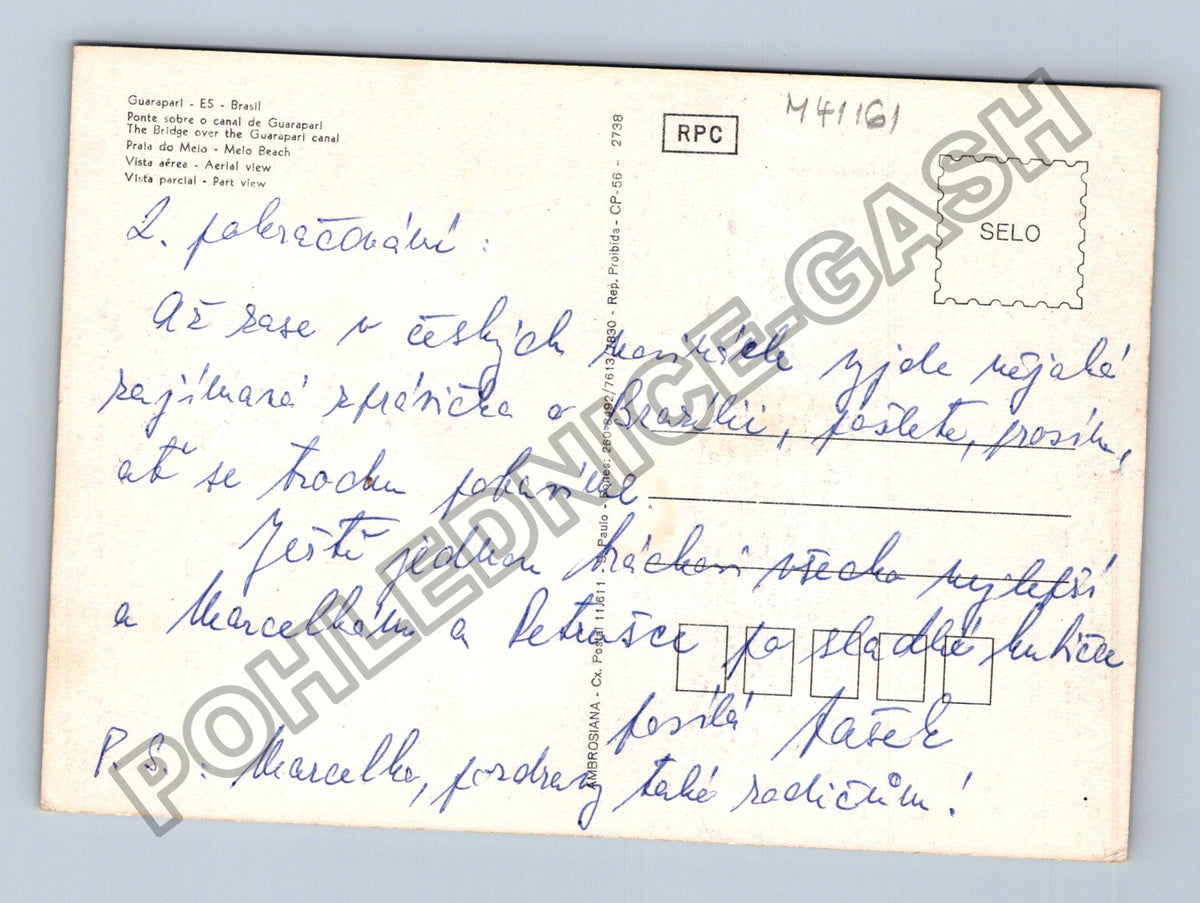 Guarapari - ES - Brasil
Ponte sobre o canal de Guarapari
The Bridge over the Guarapari canal
Praia do Meio - Meio Beach
Vista aérea - Aerial view
Vista parcial - Part view
RPC
M41161
SELO
AMBROSIANA - Cx. Postal 11.611 - S. Paulo - Fones: 260-8492/7613/7830 - Rep. Proibida - CP-56 - 2738
2. pokračování :
Až zase v českých novinách vyjde nějaká
zajímavá zprávička o Brazílii, pošlete, prosím,
ať se trochu pobavíme
Ještě jednou bráchovi všecko nejlepší
a Marcelkám a Petrušce po sladké hubičce
posílá Jašek
P. S. : Marcelko, pozdravuj také rodičům!
POHLEDNICE-GASH